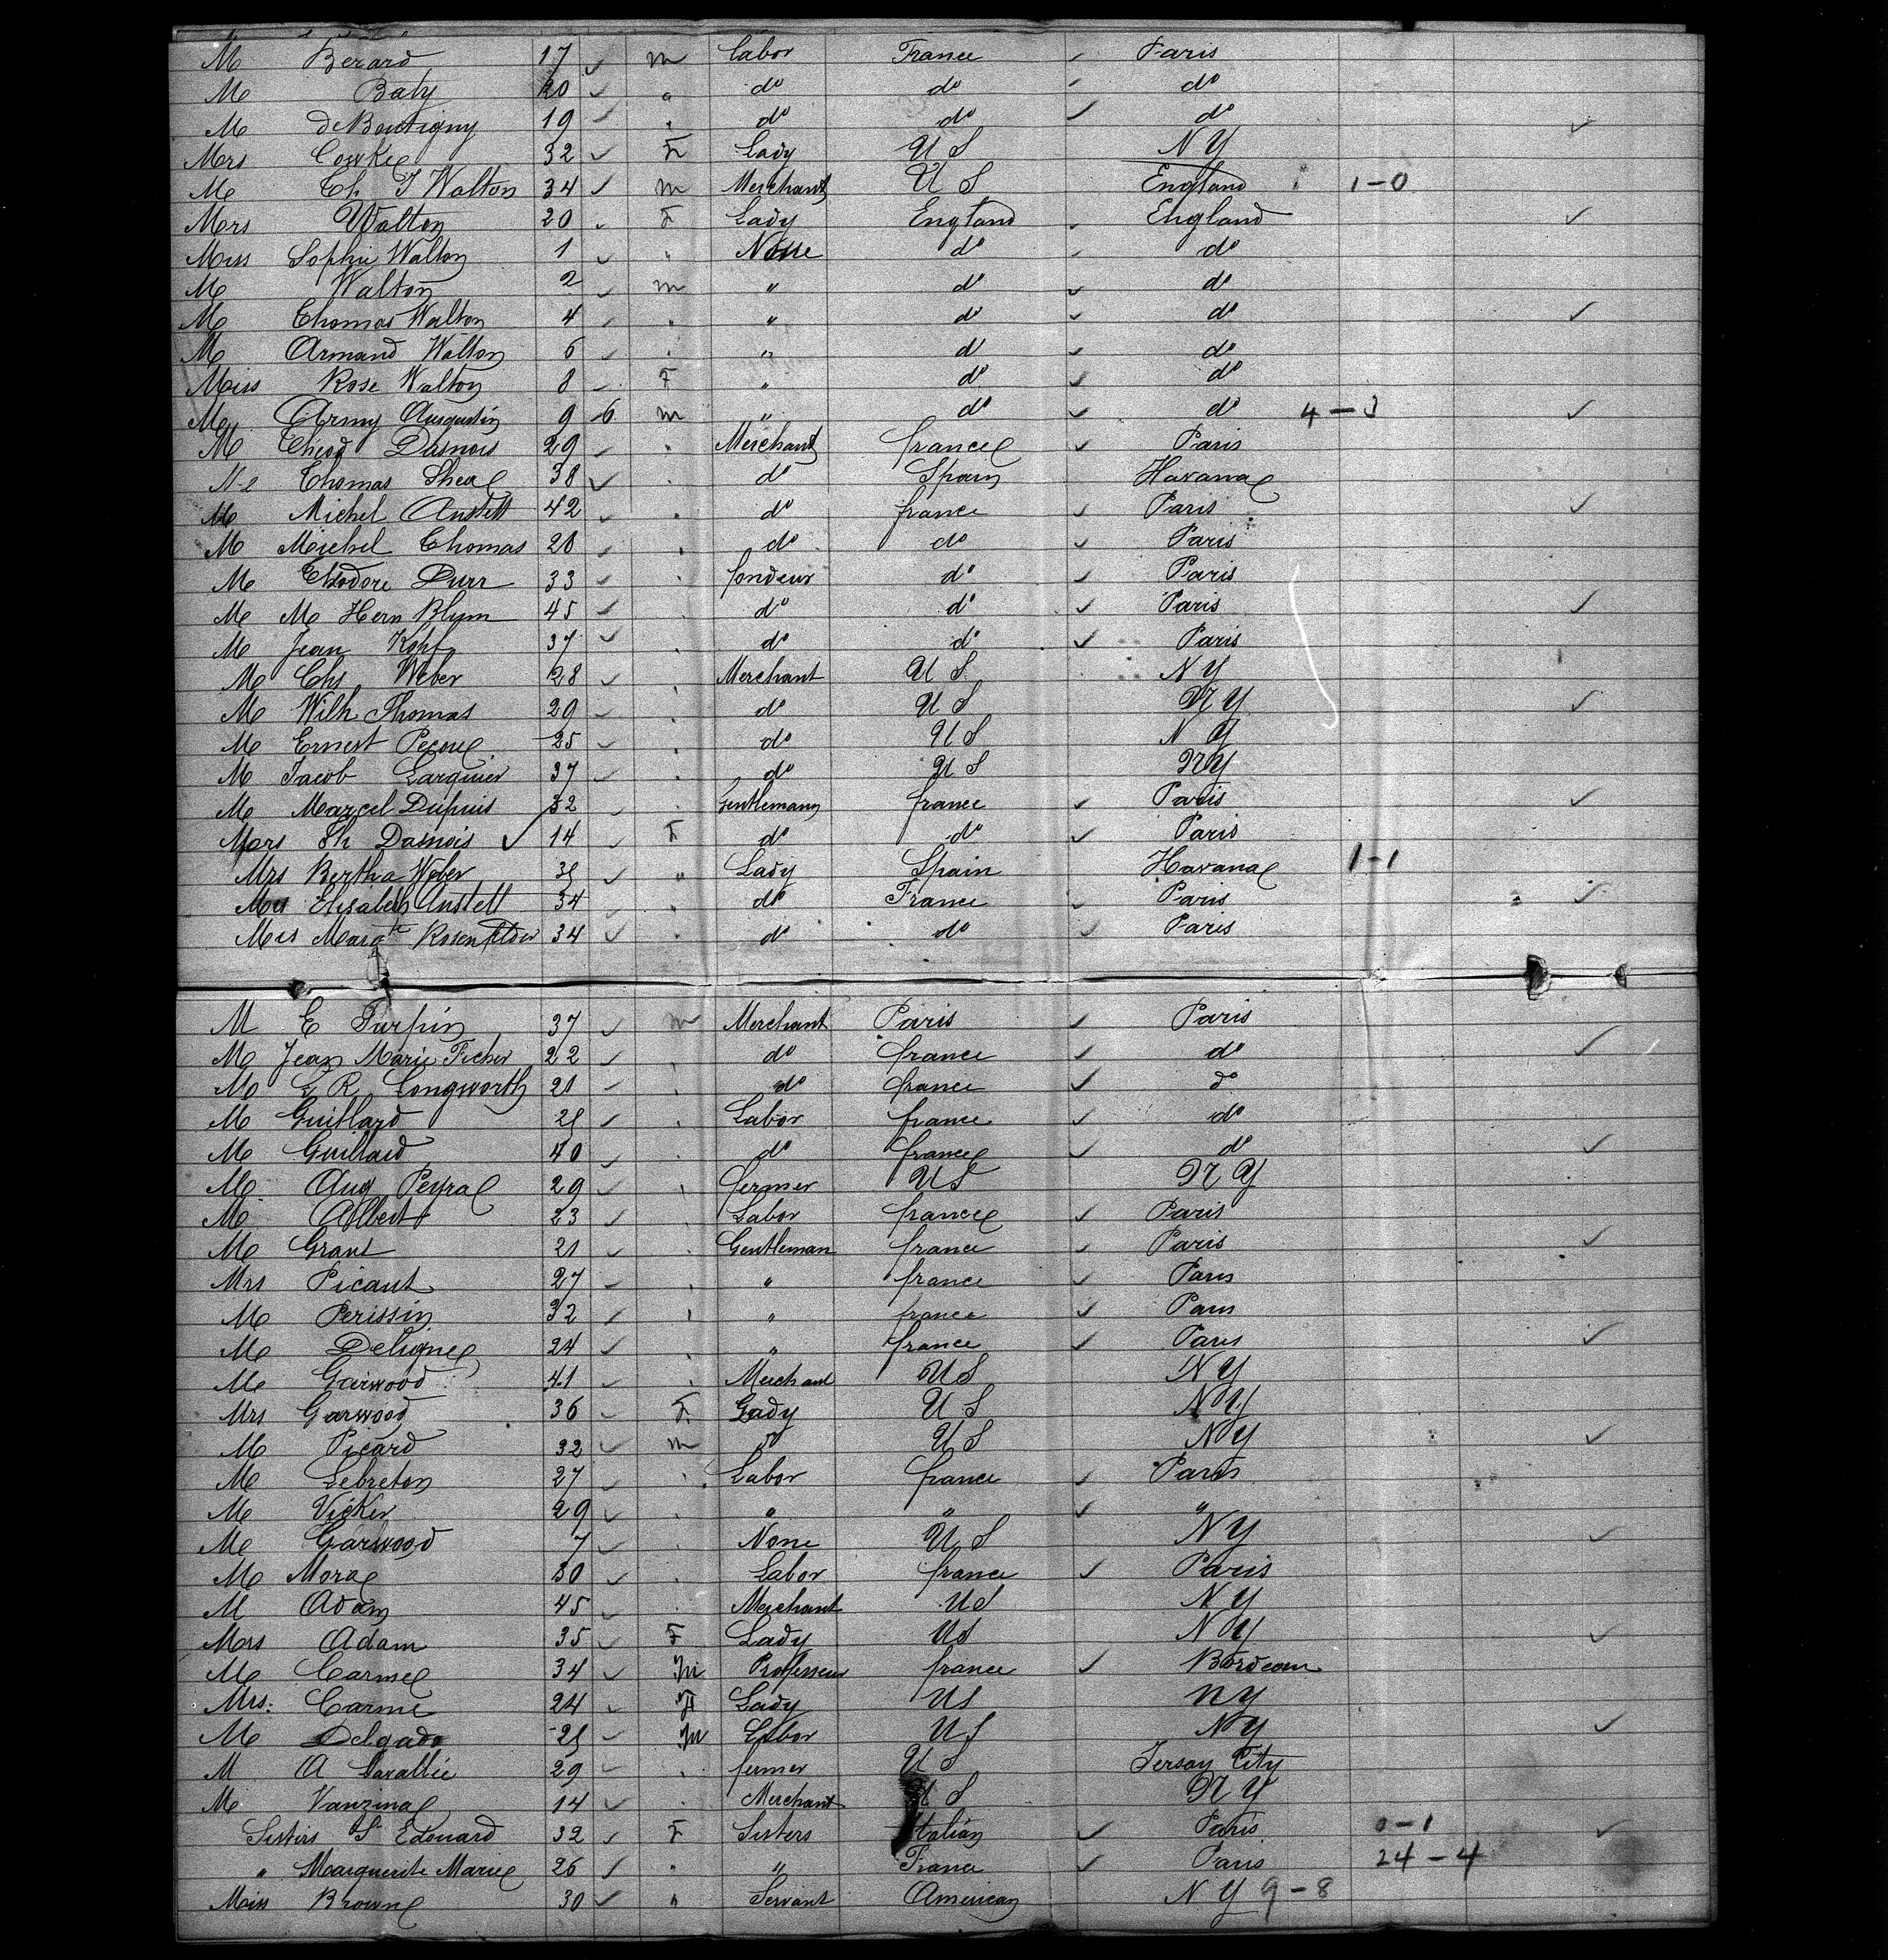 M Berard 17 m Labor France Paris
M Baty 20 " do do do
M deBoutigny 19 " do do do
Mrs Cowke 32 F Lady U S N Y
M Ch J Walton 34 m Merchant U S England 1-0
Mrs Walton 20 F Lady England England
Miss Sophie Walton 1 " None do do
M Walton 2 m " do do
M Thomas Walton 4 " " do do
M Armand Walton 6 " " do do
Miss Rose Walton 8 F " do do
M Army Augustin 9 6 m " do do 4-3
M Theod Dasnois 29 " Merchant france Paris
M Thomas Shea 38 " do Spain Havana
M Michel Anstett 42 " do france Paris
M Michel Thomas 28 " do do Paris
M Theodore Durr 33 " fondeur do Paris
M M Hern Blum 45 " do do Paris
M Jean Kopf 37 " do do Paris
M Chs Weber 28 " Merchant U S N Y
M Wilh Thomas 29 " do U S N Y
M Ernest Pecoul 25 " do U S N Y
M Jacob Larquier 37 " do U S N Y
M Marcel Dupuis 32 " Gentleman france Paris
Mrs Th Dasnois 14 F do do Paris
Mrs Bertha Weber " Lady Spain Havana 1-1
Mrs Elisabeth Anstett 34 " do France Paris
Mrs Margte Rosenfelder 34 " do do Paris
M E Turpin 37 m Merchant Paris Paris
M Jean Marie Ficher 22 " do france do
M L R Longworth 21 " do france do
M Guillard " Labor france do
M Guillard 40 " do france do
M Aug Peyral 29 " fermer U S N Y
M Albert 23 " Labor france Paris
M Grant 21 " Gentleman france Paris
Mrs Picaut 27 " " france Paris
M Perissin 32 " " france Paris
M Deligne 24 " " france Paris
M Garwood 41 " Merchant U S N Y
Mrs Garwood 36 F Lady U S N Y
M Picard 32 m do U S N Y
M Lebreton 27 " Labor france Paris
M Vicker 29 " " " "
M Garwood 7 " None U S N Y
M Mora 30 " Labor france Paris
M Adam 45 " Merchant U S N Y
Mrs Adam 35 F Lady U S N Y
M Carme 34 M Professeur france Bordeau
Mrs. Carme 24 F Lady U S N Y
M Delgado M Labor U S N Y
M A Lavallée 29 " fermer U S Jersay City
M Vanzina 14 " Merchant U S N Y
Sisters St Edouard 32 F Sisters Italian Paris 0-1
" Marguerite Marie 26 " " France Paris 24-4
Miss Brown 30 " Servant American N Y 9-8